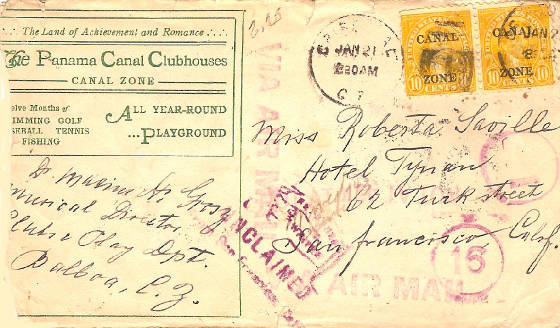 The Land of Achievement and Romance
The Panama Canal Clubhouses
CANAL ZONE
elve Months of
IMMING GOLF
SEBALL TENNIS
FISHING
ALL YEAR-ROUND
...PLAYGROUND
JAN 21
2 30AM
C. Z.
CANAL
ZONE
10 CENTS 10
CANAL
ZONE
10 CENTS 10
JAN 2
VIA AIR MAIL
Miss Roberta Saville
Hotel Tynan
62 Turk street
San Francisco Calif.
Musical Director
Clubs & Play Dept.
Balboa, C. Z.
UNCLAIMED
16
AIR MAIL